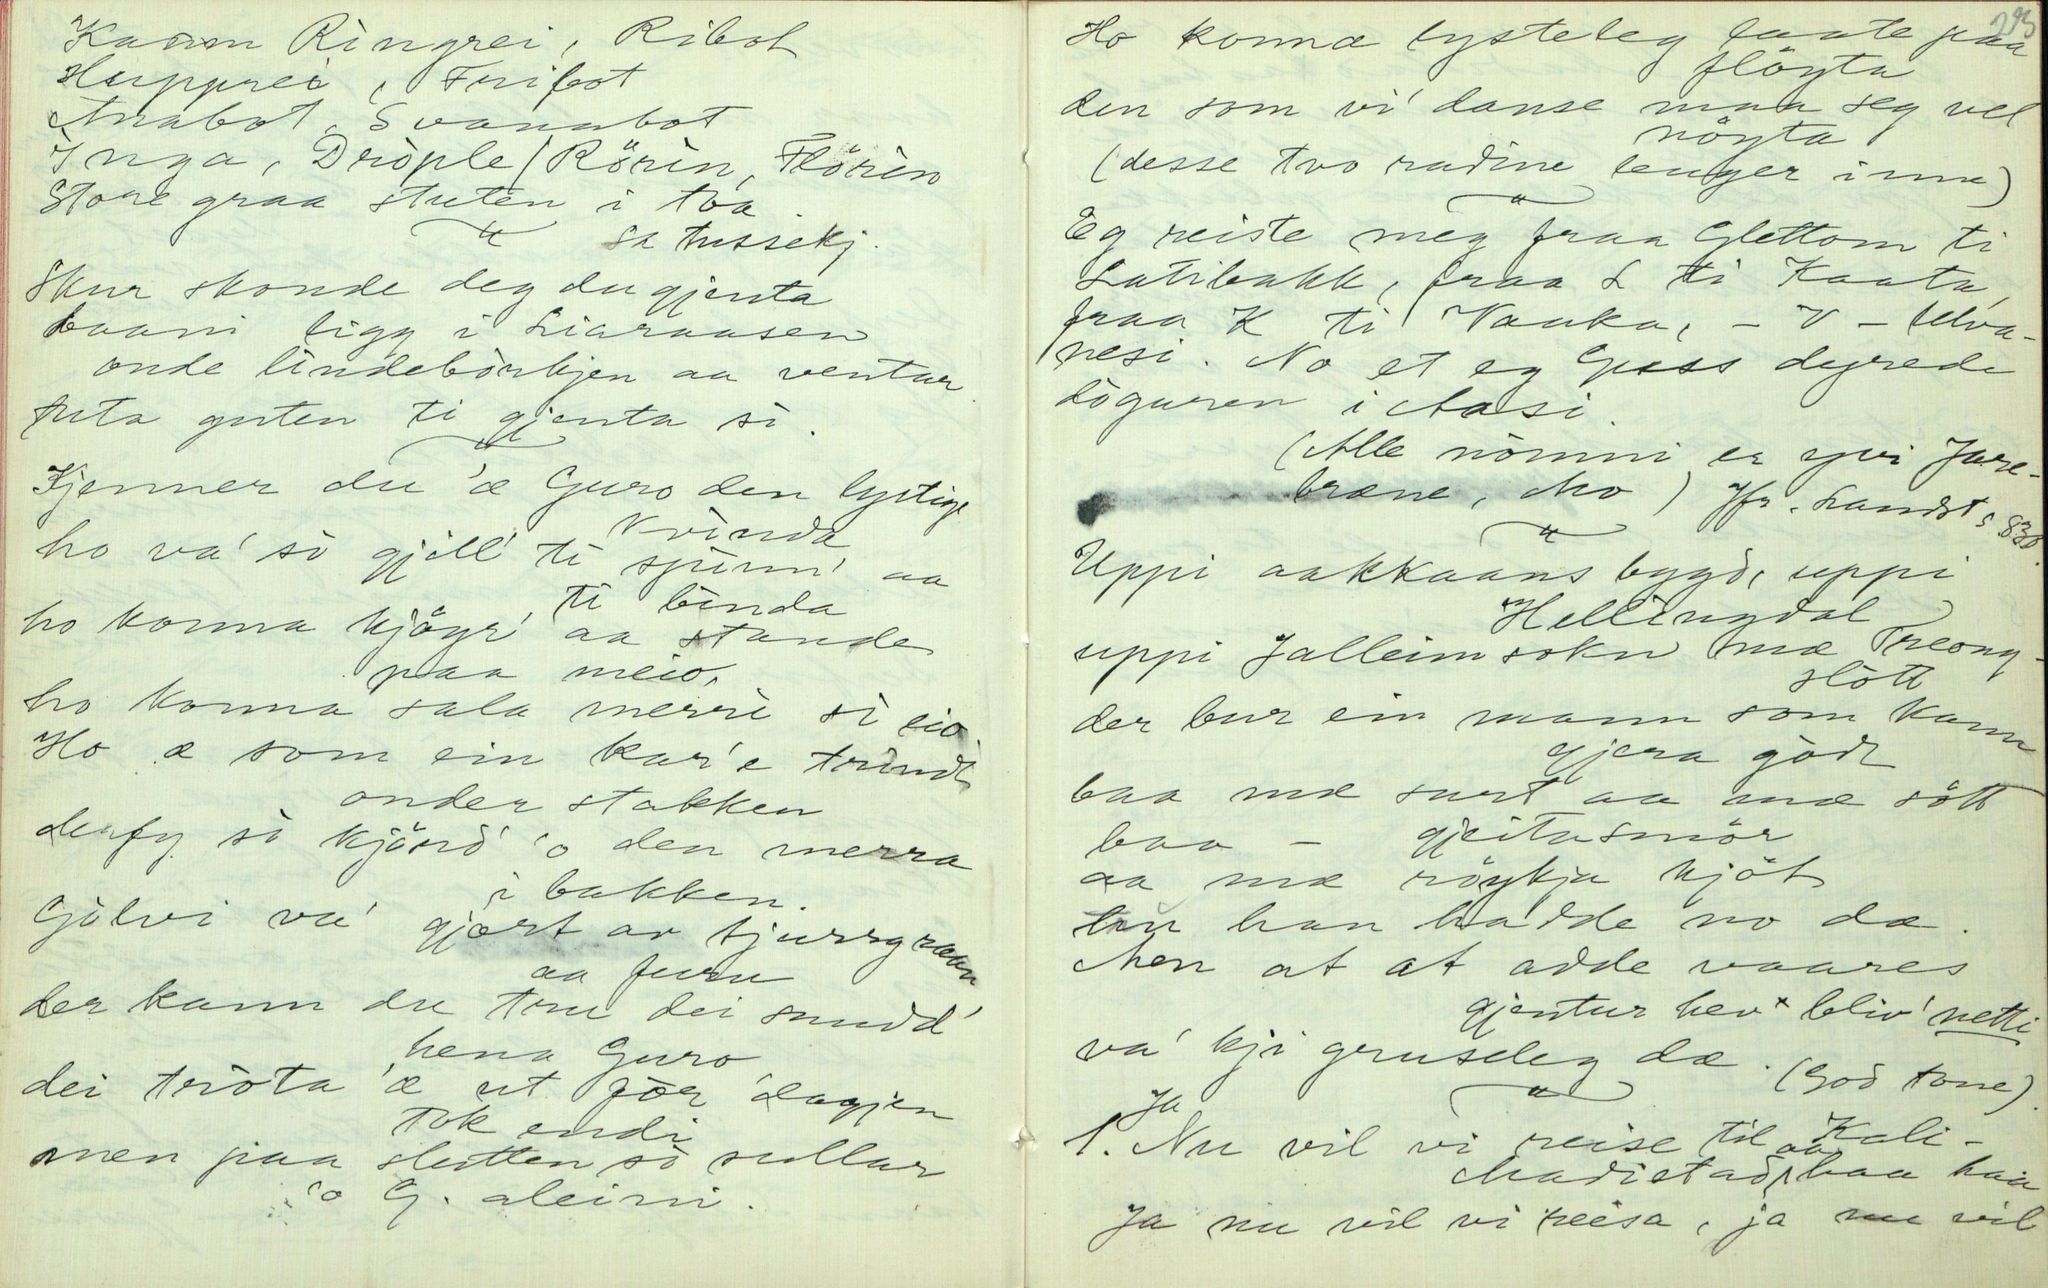 Kaam Ringrei, Ribot
Hupprei, Fribot
Anabot, Svanabot
Inga, Dröple (Rörin, Flörin
Store graa stuten i tòa.
sa tussekj.
Skur skonde deg du gjenta
baani ligg i Liaraasen
onde lindebörkjen aa ventar
tuta guten ti gjenta si.
Kjenner du 'æ Guro den lystige
kvinda
ho va' so gjill' ti spinn' aa
ti binda
ho konna kjöyr' aa stande
paa meio,
ho konna sala merri si eio
Ho æ som ein kar'e trindt
onder stakken
derfy so kjörd' 'o den merra
i bakken.
Gölvi va' gjort av tjurrgræan
aa furu
der kann du tru dei snudd'
hena Guro
dei tròta 'æ ut før dagjen
tok endi
men paa slutten so sullar
'o G. aleini.
295
Ho konna lysteleg laate paa
flöyta
den som vi' danse maa seg vel
nöyta
(desse tvo radine lenger inne)
Eg reiste meg fraa Glettom ti
Latibakk, fraa L ti Kaata,
fraa K ti Vauka, - V - Ulva-
nesi. No et eg Guss dyrede
döguren i Aasi.
(Alle nömni er yvi Jare-
bræne, Mo) Jfr. Landst s 830.
Uppi aakkaans bygd, uppi
Hellingdal
uppi Jalleim sokn mæ Treong-
slött
der bur ein mann som kann
gjera godt
baa mæ surt aa mæ sött
baa - gjeitasmör
aa mæ röykja kjöt
han hadde no dæ.
Men at at adde vaares
gjentur hev* bliv' netti
va' kji gruseleg dæ. (God tone).
Ja
1. Nu vil vi reise til Kali-
Madistad, baa
Ja nu vil vi reisa, ja nu vil